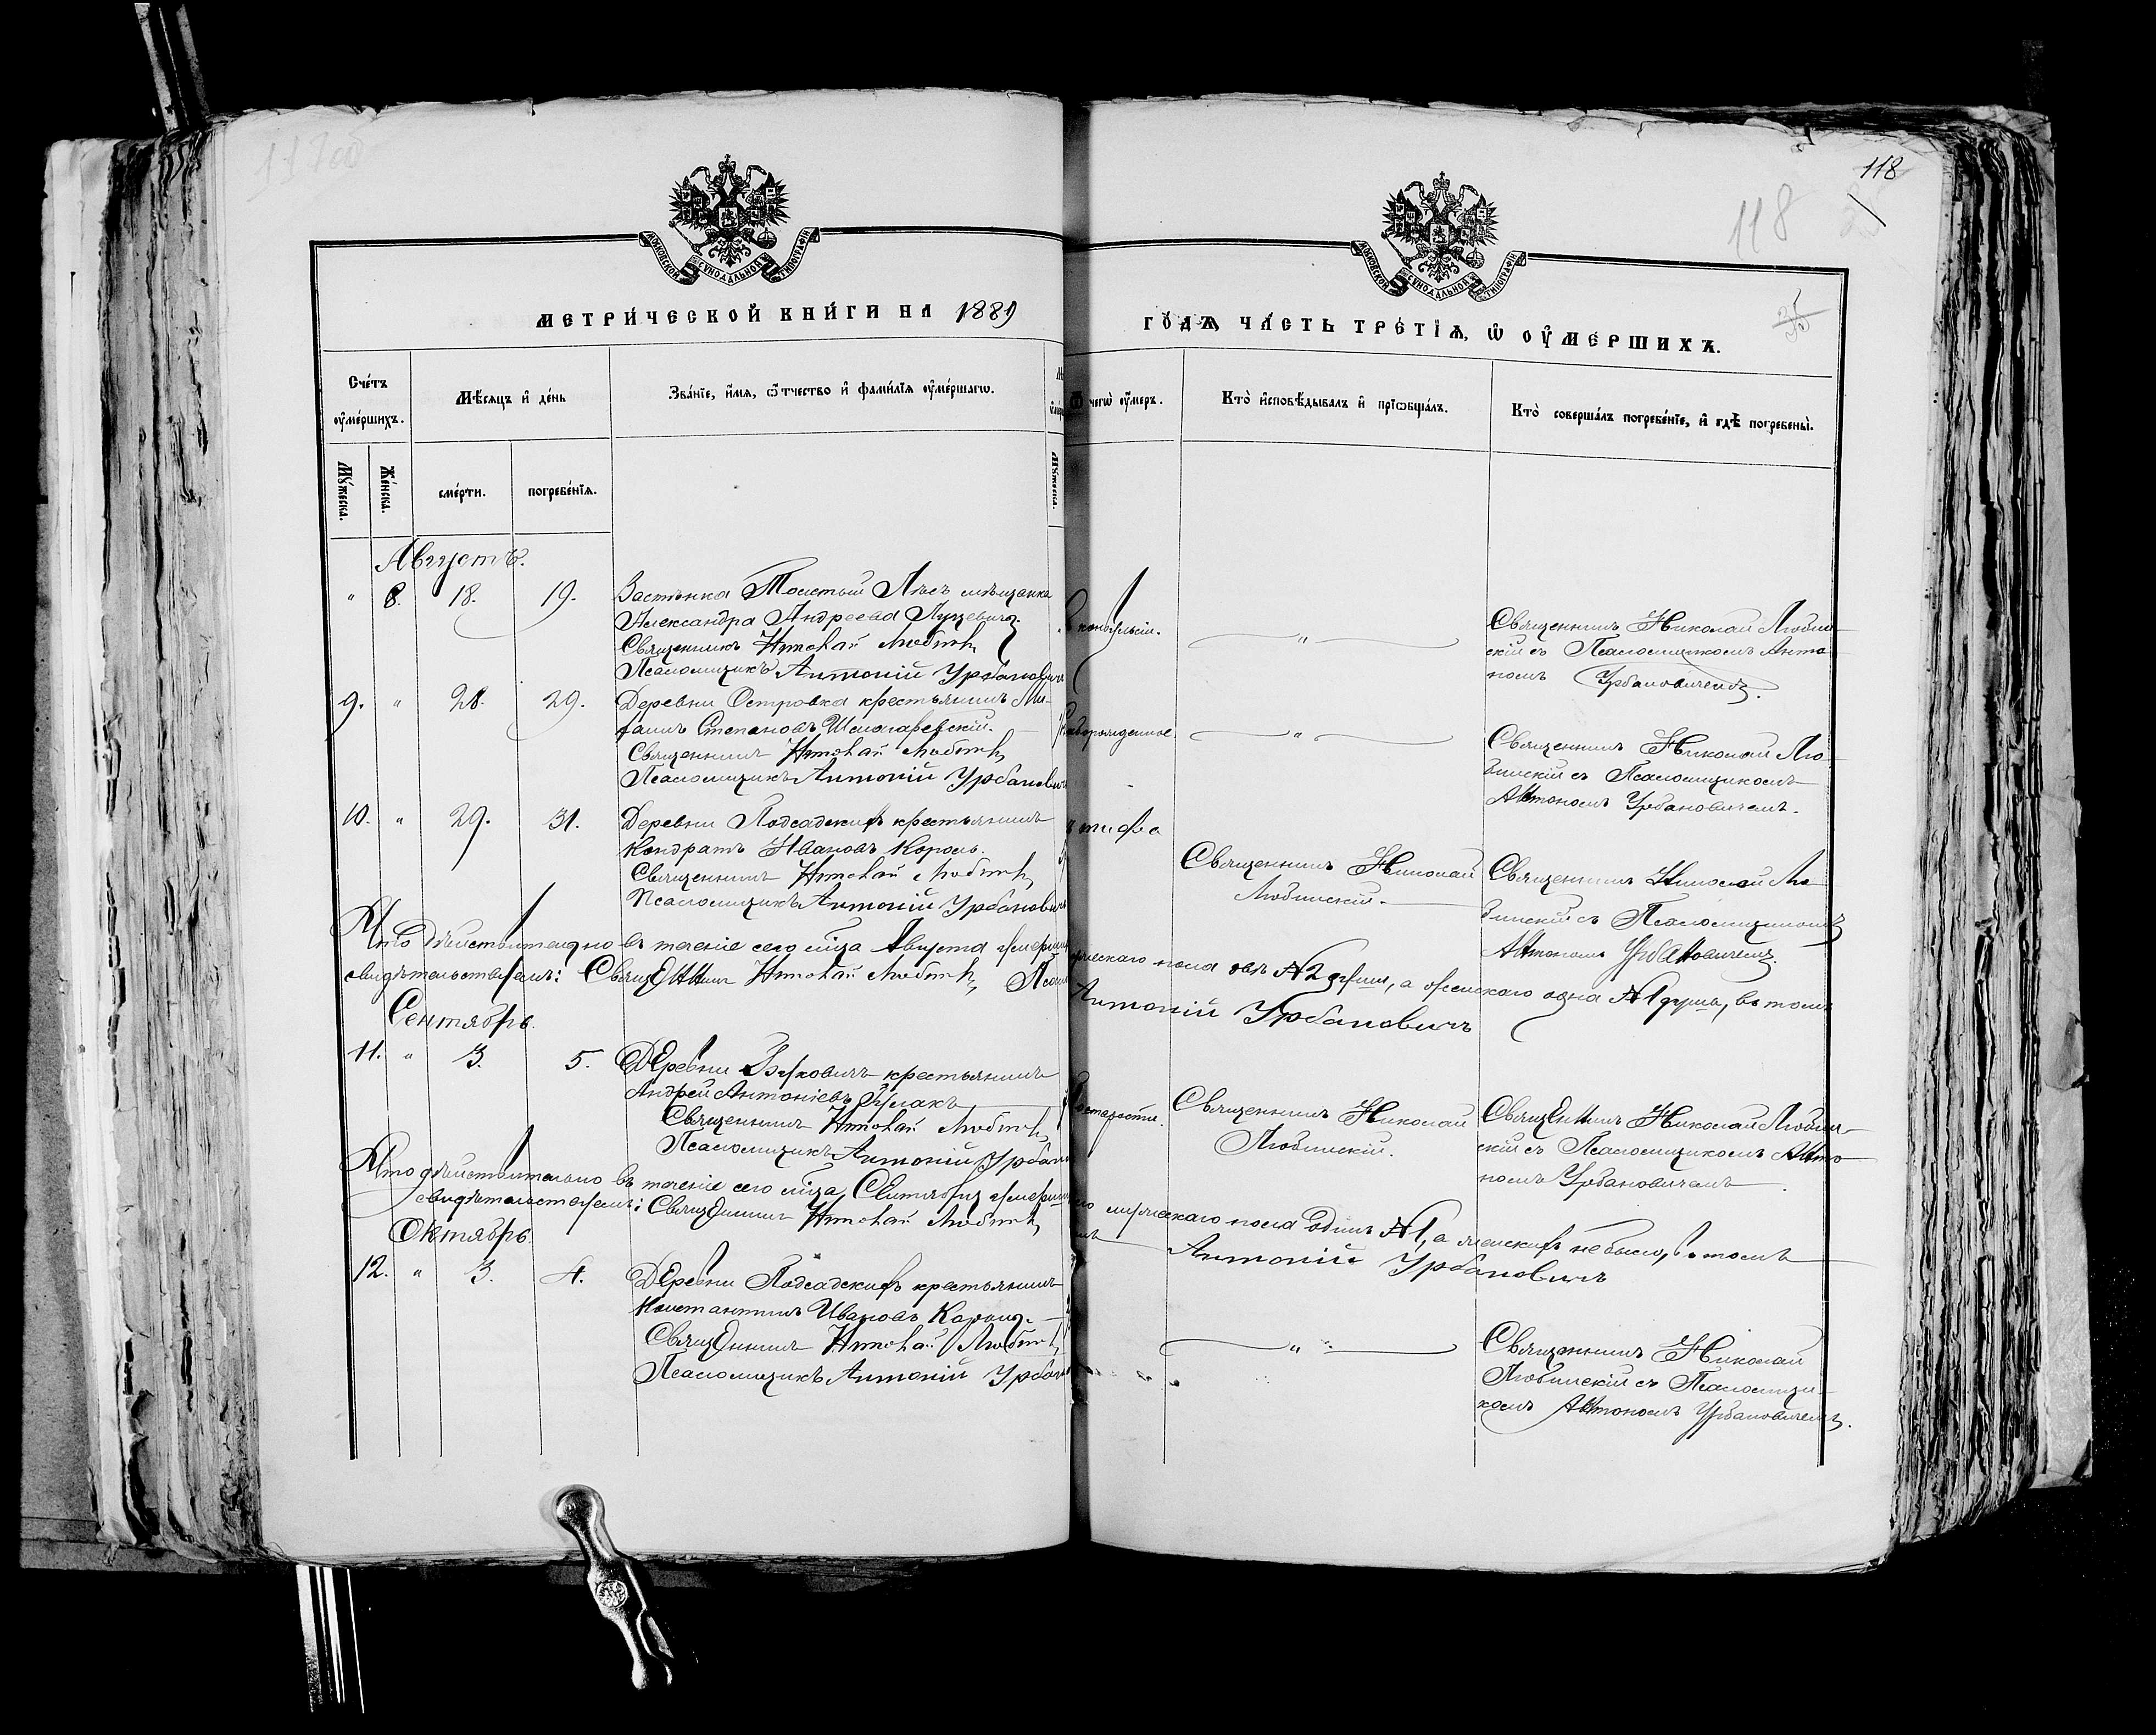 118
118
35
МОСКОВСКОЙ СѴНОДАЛЬНОЙ ТИПОГРАФІИ
МОСКОВСКОЙ СѴНОДАЛЬНОЙ ТИПОГРАФІИ
МЕТРИ́ЧЕСКОЙ КНИ́ГИ НА 1889
ГО́ДЪ, ЧА́СТЬ ТРЕ́ТІѦ, Ѡ ОУ҆МЕ́РШИХЪ.
Сче́тъ оу҆ме́ршихъ.
Мѣ́сѧцъ и҆ де́нь
Зва́нїе, и҆́мѧ, ѻ҆́тчество и҆ фами́лїѧ оу҆ме́ршагѡ.
Ѿ чегѡ̀ оу҆́меръ.
Кто̀ и҆сповѣ́дывалъ и҆ прїѡбща́лъ.
Кто̀ соверша́лъ погребе́нїе, и҆ гдѣ̀ погребены̀.
Мꙋ́жеска.
Же́нска.
сме́рти.
погребе́нїѧ.
Мꙋ́жеска.
Августъ.
" 8. 18. 19. Застѣнка Толстый Лѣсъ мѣщанка
Александра Андреева Луцевичъ.
Священникъ Николай
Псаломщикъ Антоній Урбановичъ
"
Священникъ Николай Любин-
скій съ Псаломщикомъ Анто-
номъ Урбановичемъ.
9. " 28. 29. Деревни Островка крестьянинъ
Степановъ
Священникъ Николай
Псаломщикъ Антоній Урбановичъ
"
Священникъ Николай Лю-
бинскій съ Псаломщикомъ
Антономъ Урбановичемъ.
10. " 29. 31. Деревни Подсадскихъ крестьянинъ
Кондратъ Ивановъ Король.
Священникъ Николай
Псаломщикъ Антоній Урбановичъ
тифа
Священникъ Николай
Любинскій.
Священникъ Николай Лю-
бинскій съ Псаломщикомъ
Антономъ Урбановичемъ.
Что дѣйствительно въ теченіе сего мѣсца Августа умерш
мужескаго пола двѣ №2 души, а женскаго одна №1 душа, въ томъ
свидѣтельствуемъ: Священникъ Николай
Антоній Урбановичъ
Сентябрь.
11. " 3. 5. Деревни крестьянинъ
Андрей Антоніевъ
Священникъ Николай
Псаломщикъ Антоній Урбан
старости.
Священникъ Николай
Любинскій.
Священникъ Николай Любин-
скій съ Псаломщикомъ Анто-
номъ Урбановичемъ.
Что дѣйствительно въ теченіе сего мѣсца Сентября умерш
мужескаго пола одинъ №1, а женскихъ небыло, въ томъ
свидѣтельствуемъ: Священникъ Николай
Антоній Урбановичъ
Октябрь.
12. " 3. 4. Деревни Подсадскихъ крестьянинъ
Константинъ Ивановъ
Священникъ Николай
Псаломщикъ Антоній Урбан
"
Священникъ Николай
Любинскій съ Псаломщи-
комъ Антономъ Урбановичемъ.